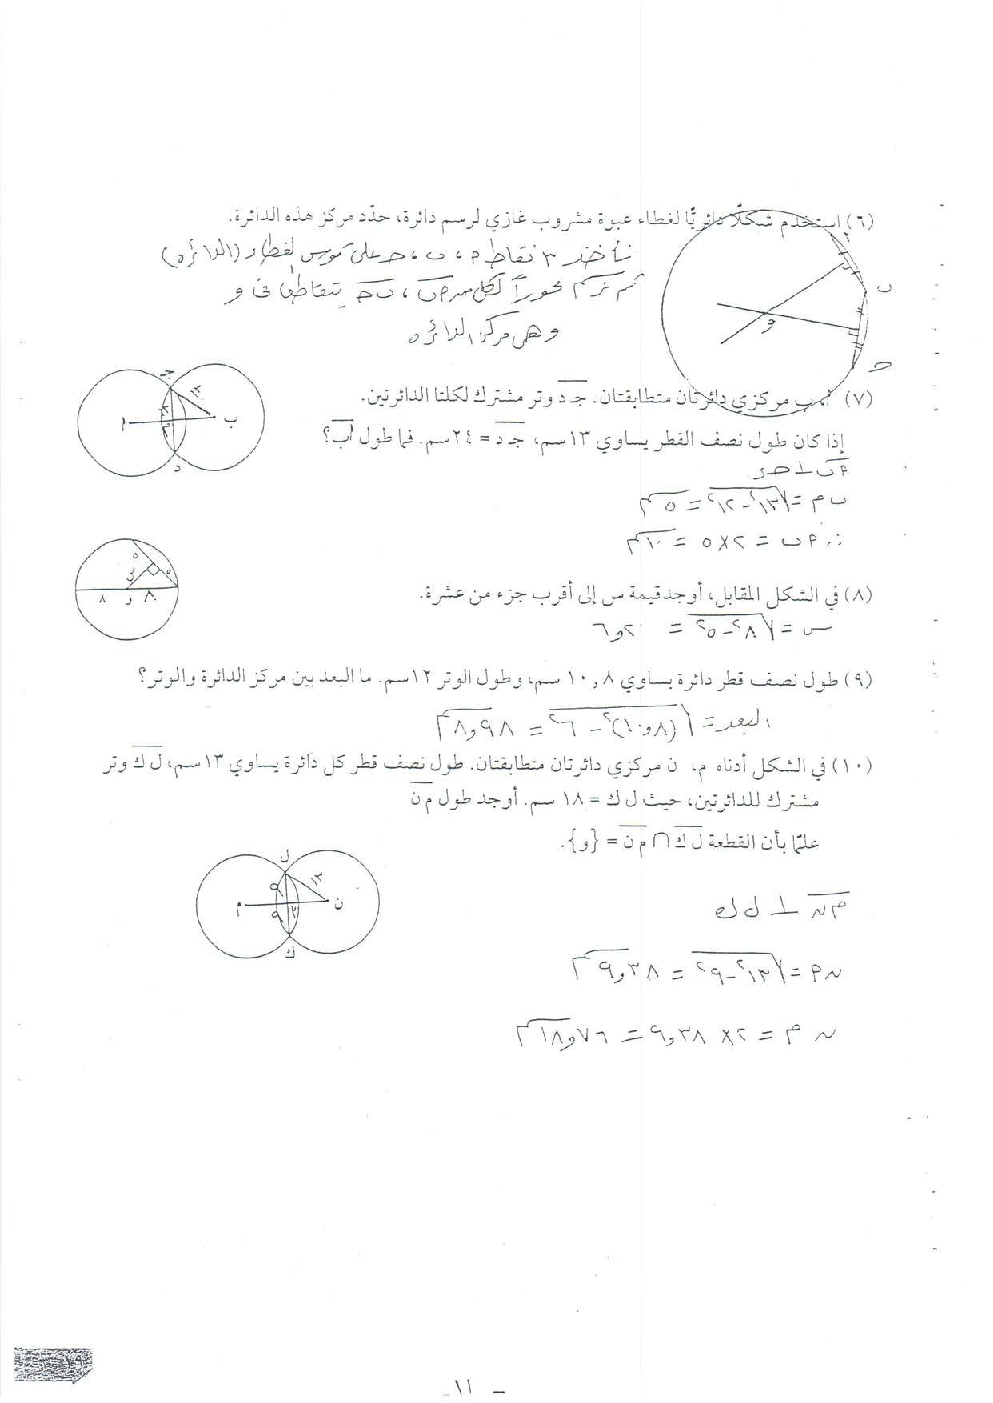 (٦) استخدم شكلًا دائريًّا لغطاء عبوة مشروب غازي لرسم دائرة، حدّد مركز هذه الدائرة.
نأخذ ٣ نقاط م، ب، حـ على قوس لغطاء (الدائره)
ثم نرسم محوراً لكل من م ب، ب حـ يتقاطعا في و
وهي مركز الدائره
م
ب
حـ
و
(٧) ب مركزي دائرتان متطابقتان. جـ د وتر مشترك لكلتا الدائرتين.
إذا كان طول نصف القطر يساوي ١٣ سم، جـ د = ٢٤ سم. فما طول أ ب؟
م ب ⊥ حـ د
ب م = √(١٣² - ١٢²) = ٥ سم
∴ م ب = ٢ × ٥ = ١٠ سم
جـ
١٣
ب
أ
١٢
١٢
د
(٨) في الشكل المقابل، أوجد قيمة س إلى أقرب جزء من عشرة.
س = √(٨² - ٥²) = ٦,٢
٥
٥
س
٨
و
٨
(٩) طول نصف قطر دائرة يساوي ١٠,٨ سم، وطول الوتر ١٢ سم. ما البعد بين مركز الدائرة والوتر؟
البعد = √((١٠,٨)² - ٦²) = ٨,٩٨ سم
(١٠) في الشكل أدناه م. ن مركزي دائرتان متطابقتان. طول نصف قطر كل دائرة يساوي ١٣ سم، ل ك وتر
مشترك للدائرتين، حيث ل ك = ١٨ سم. أوجد طول م ن
علمًا بأن القطعة ل ك ∩ م ن = {و}.
ل
١٣
ن
م
٩
٩
ك
م ن ⊥ ل ك
ن م = √(١٣² - ٩²) = ٩,٣٨ سم
ن م = ٢ × ٩,٣٨ = ١٨,٧٦ سم
- ١١ -